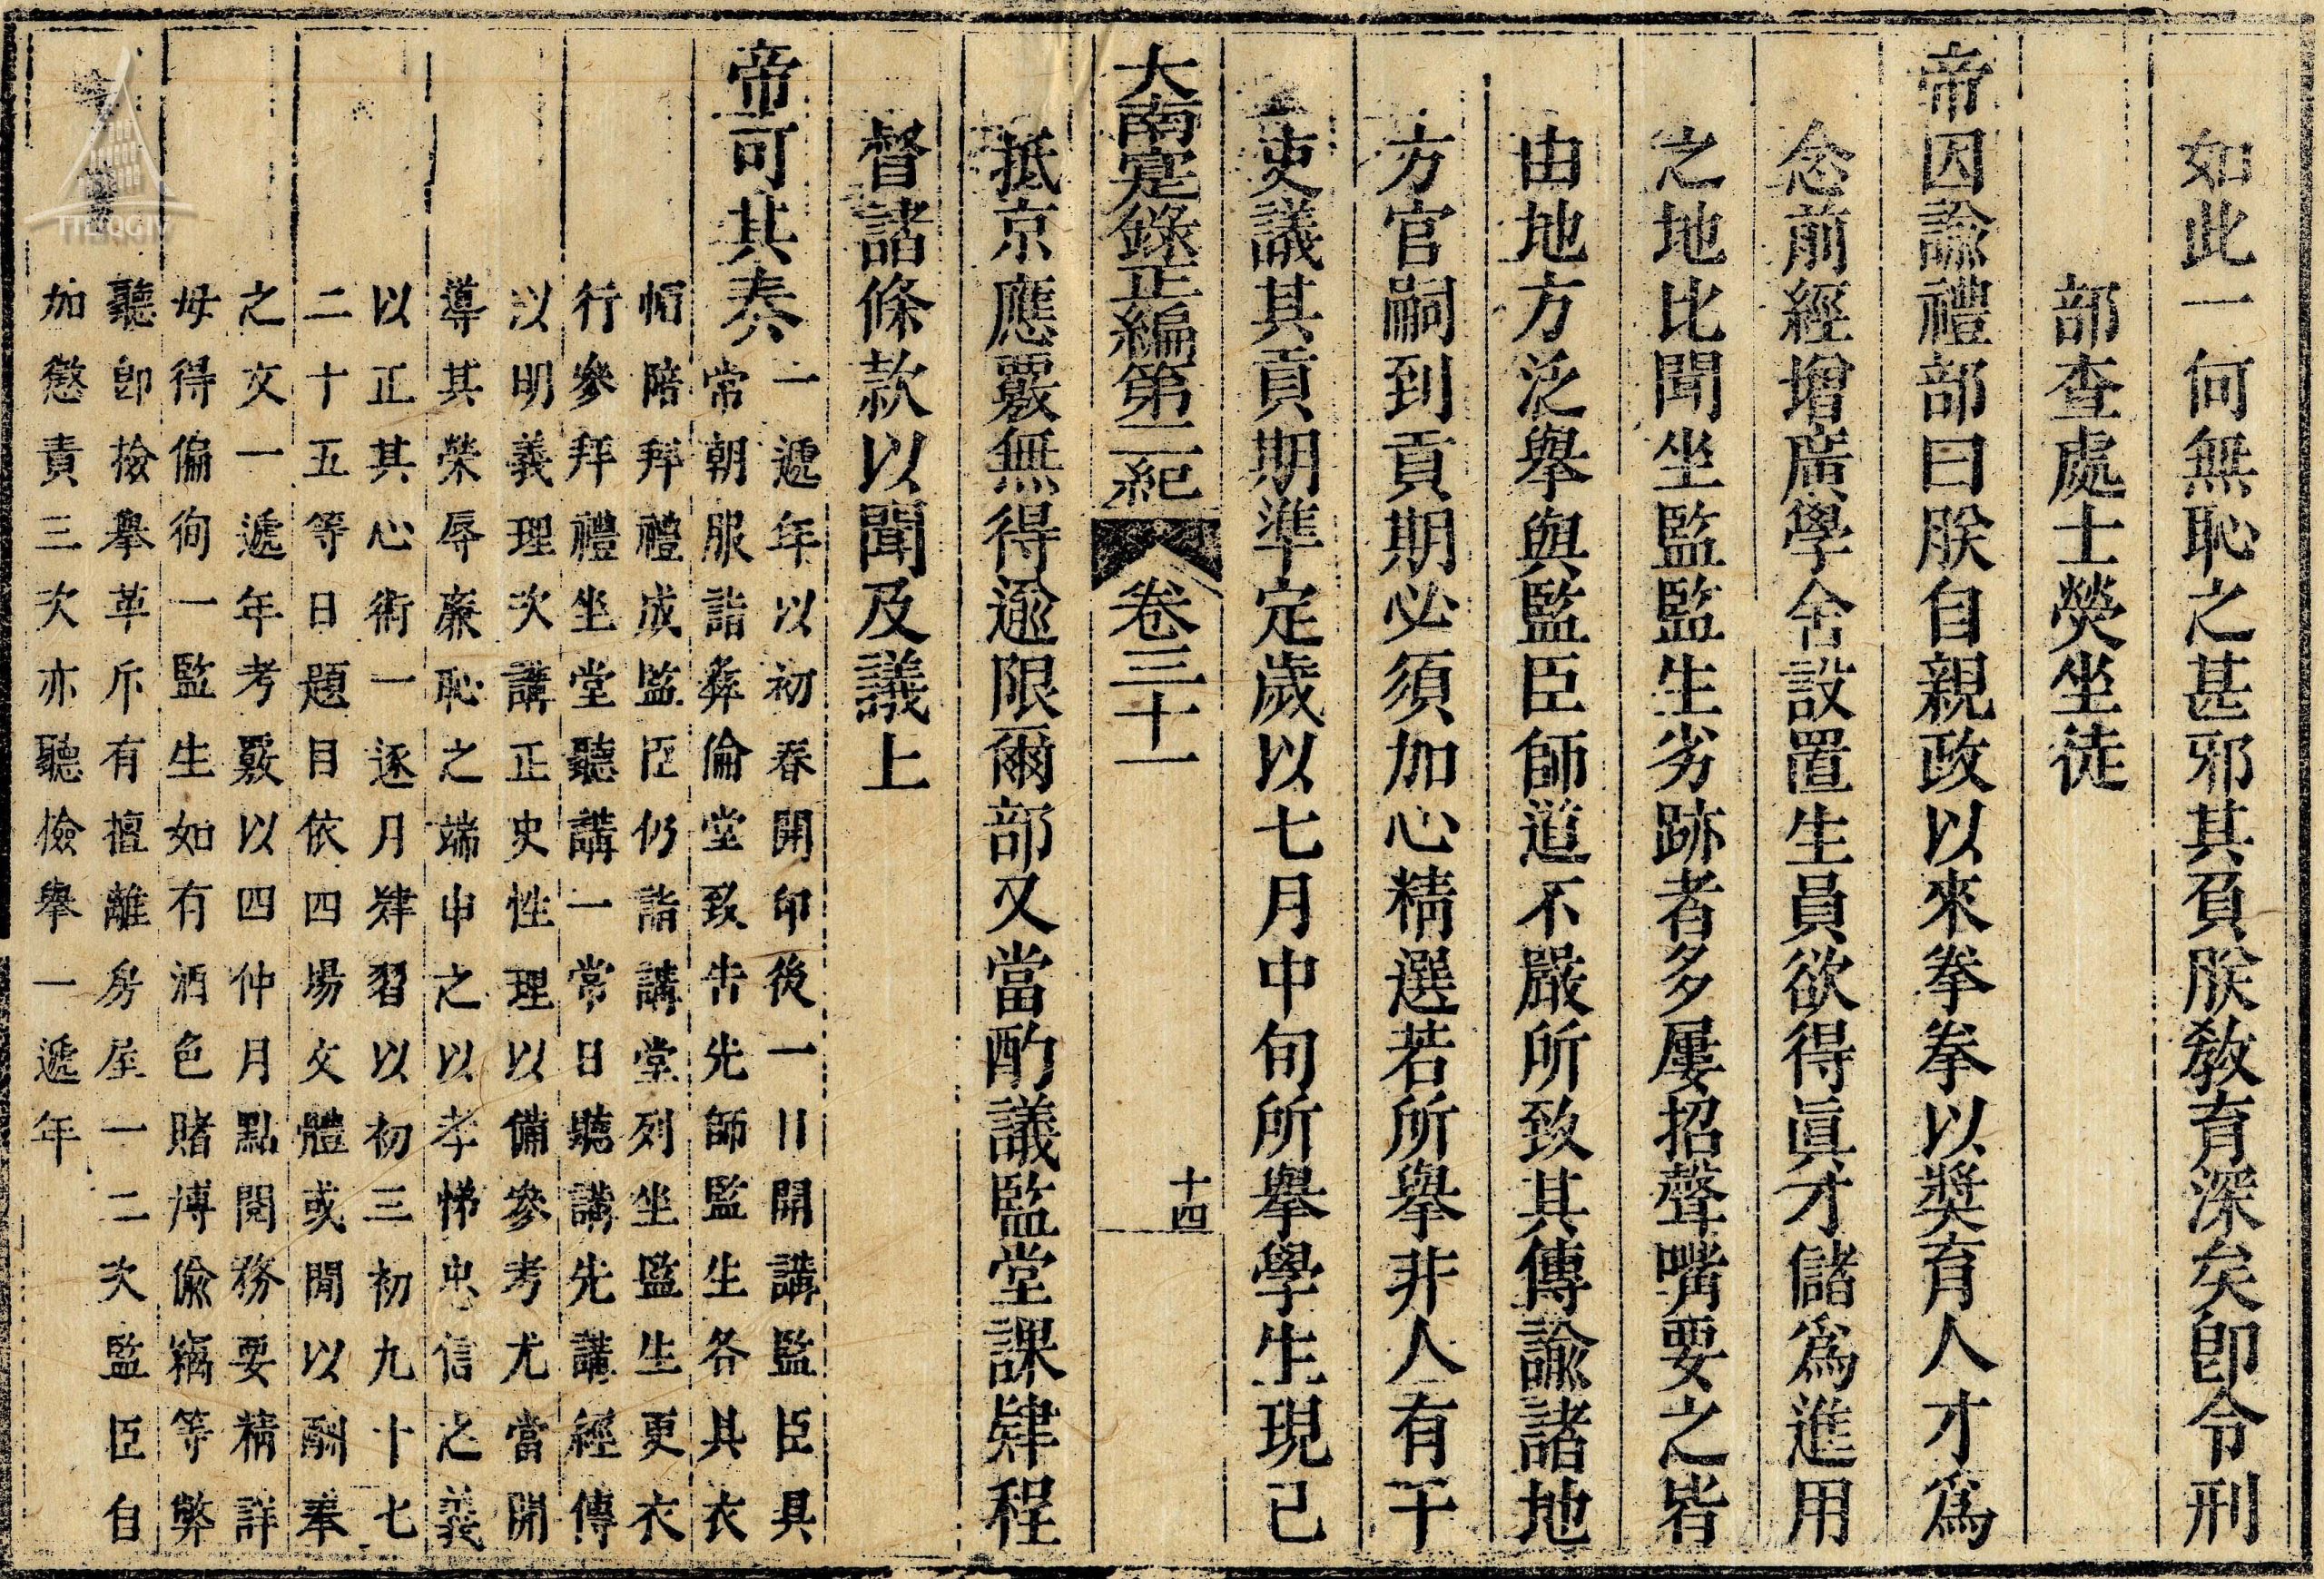 如此一何無恥之甚邪其負朕敎育深矣卽令刑
部查處士熒坐徒
帝因諭禮部曰朕自親政以來拳拳以奬育人才爲
念前經增廣學舍設置生員欲得眞才儲爲進用
之地比聞坐監監生劣跡者多屢招聲嘴要之皆
由地方泛舉與監臣師道不嚴所致其傳諭諸地
方官嗣到貢期必須加心精選若所舉非人有干
吏議其貢期準定歲以七月中旬所舉學生現已
大南寔錄正編第二紀 卷三十一 十四
抵京應覈無得逾限爾部又當酌議監堂課肄程
督諸條款以聞及議上
帝可其奏
一遞年以初春開印後一日開講監臣具
常朝服詣彝倫堂致告先師監生各具衣
帽陪拜禮成監臣仍詣講堂列坐監生更衣
行參拜禮坐堂聽講一常日聽講先講經傳
以明義理次講正史性理以備參考尤當開
導其榮辱廉恥之端申之以孝悌忠信之義
以正其心術一逐月肄習以初三初九十七
二十五等日題目依四場文體或間以酬奉
之文一遞年考覈以四仲月點閱務要精詳
毋得偏徇一監生如有酒色賭博偸竊等弊
聽卽檢舉革斥有擅離房屋一二次監臣自
加懲責三次亦聽檢舉一遞年
TTLTQGIV